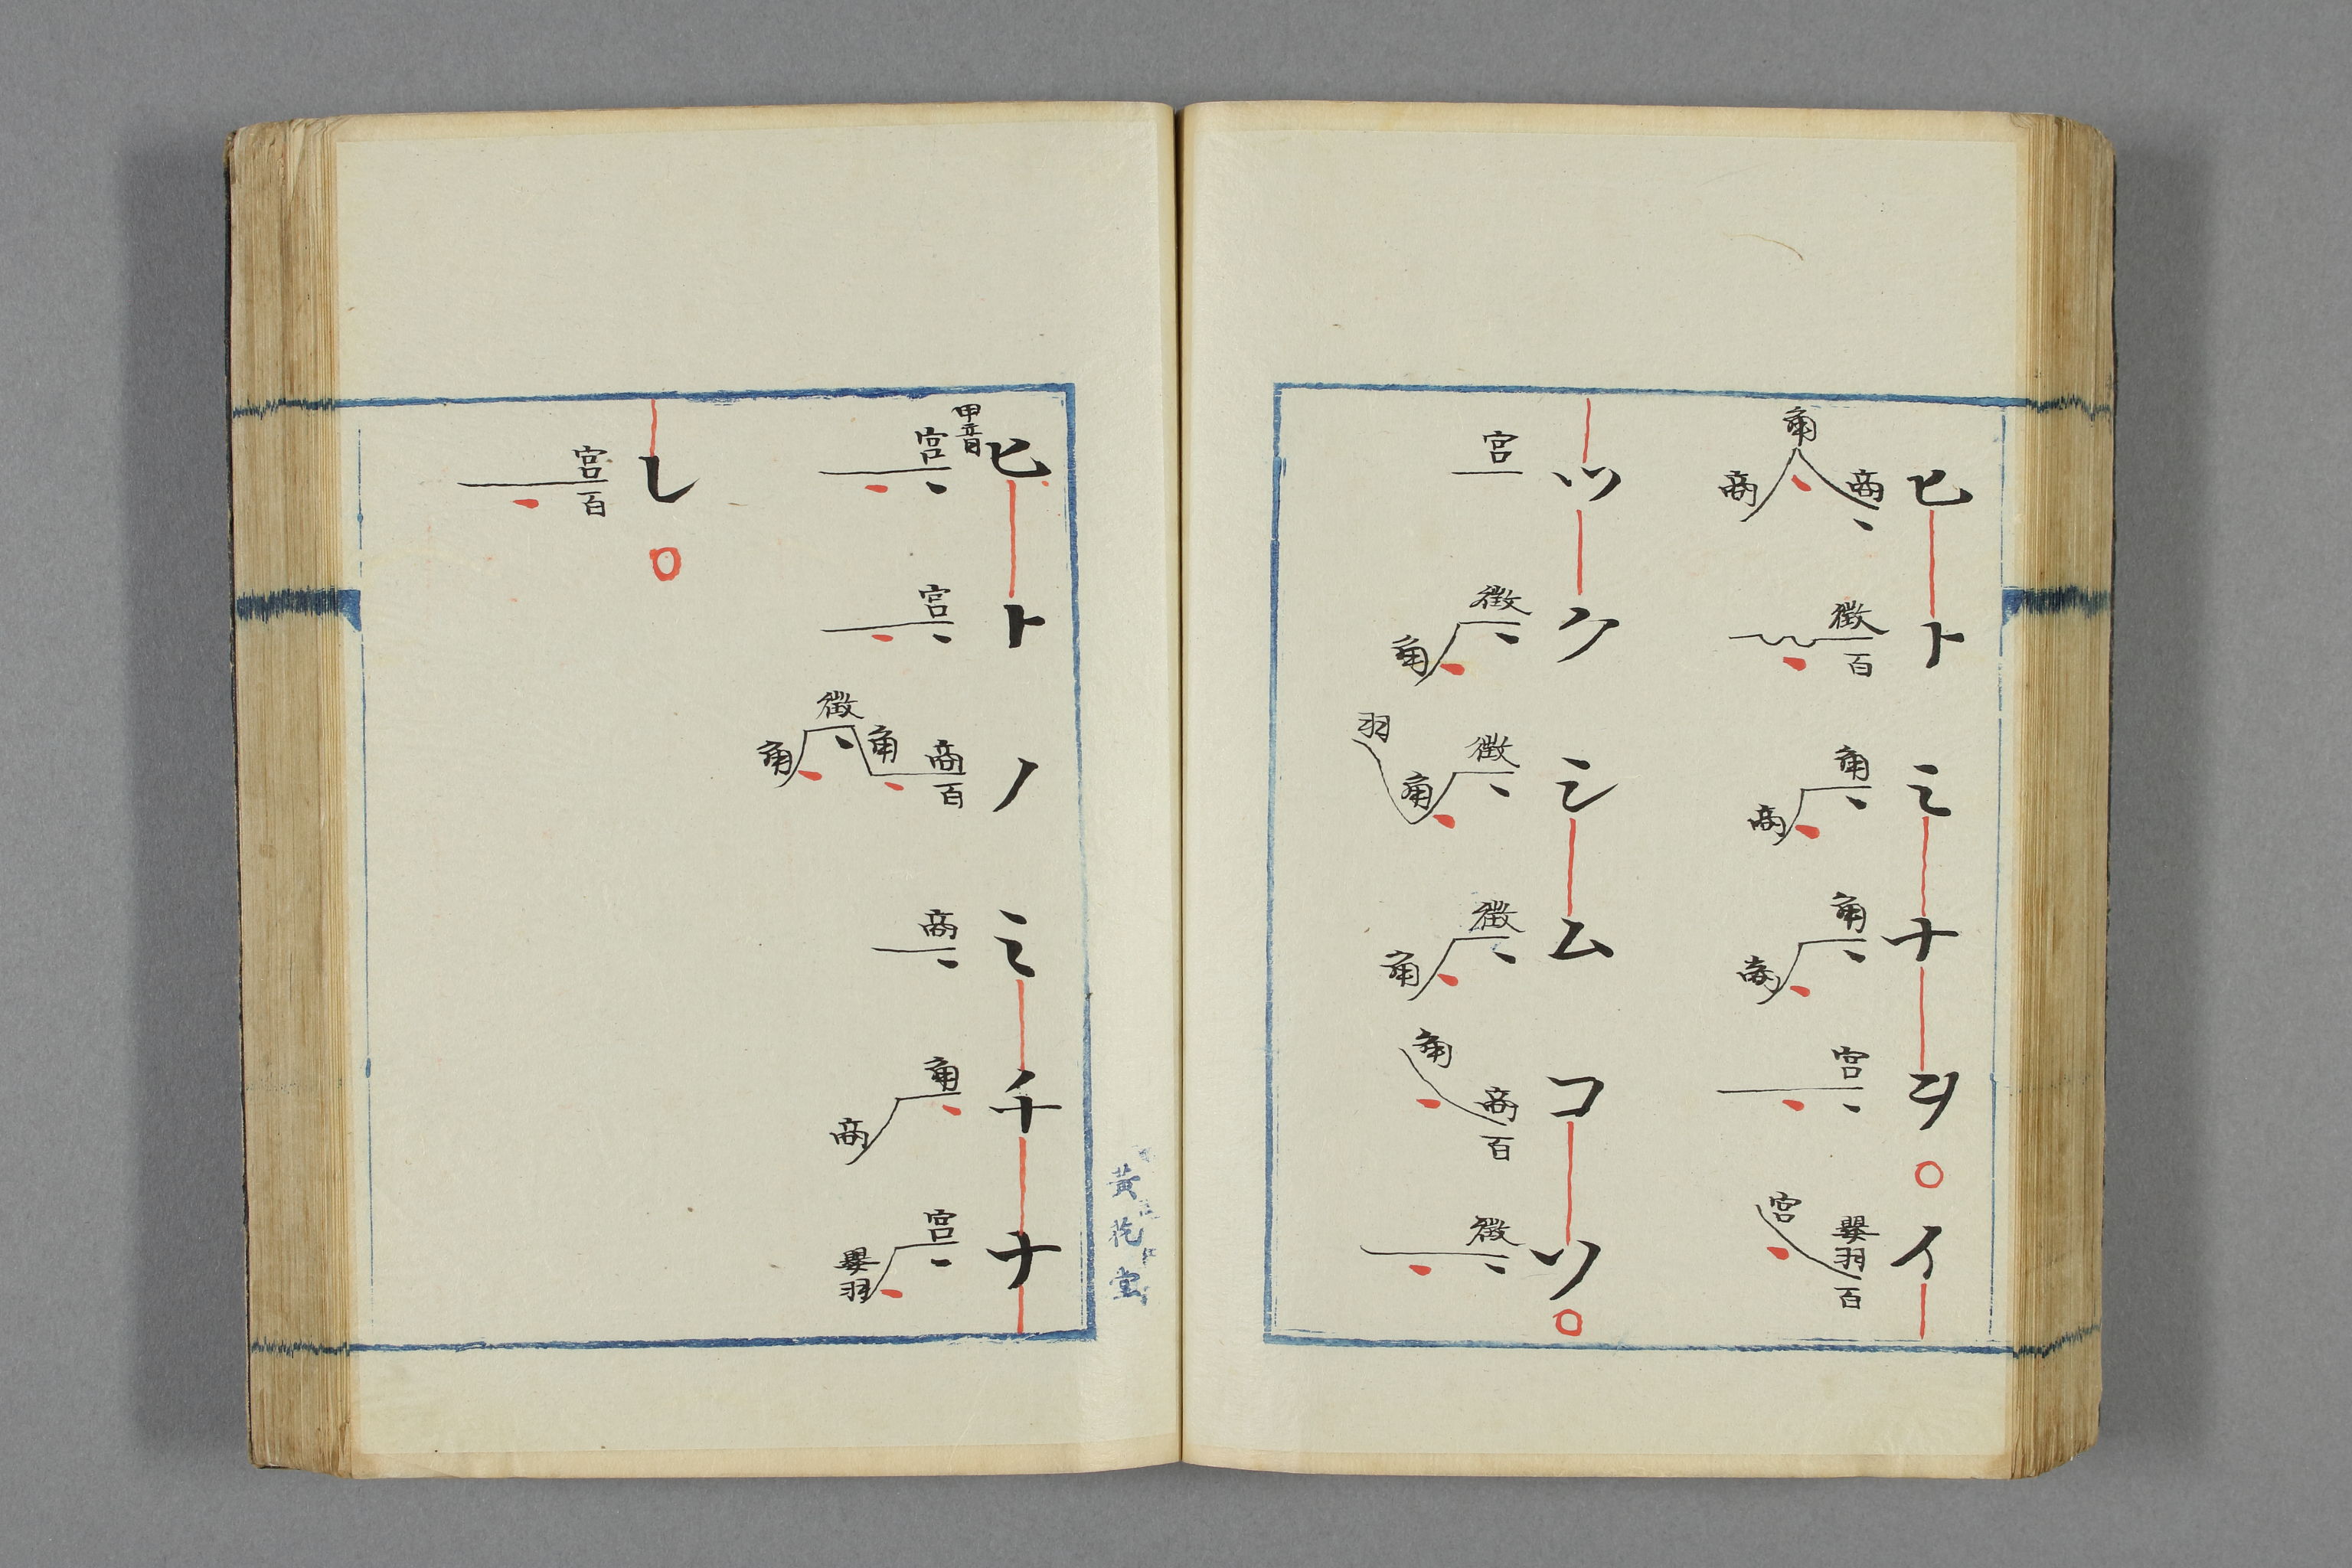 ヒトミナヲ○イ
商角商
徵百
角商
角商
宮
嬰羽百宮
ツクシムコツ○
宮
徵角
徵角羽
徵角
商百角
徵
黄花堂
ヒトノミチナ
甲音
宮
宮
商百角徵角
商
角商
宮嬰羽
レ○
宮百